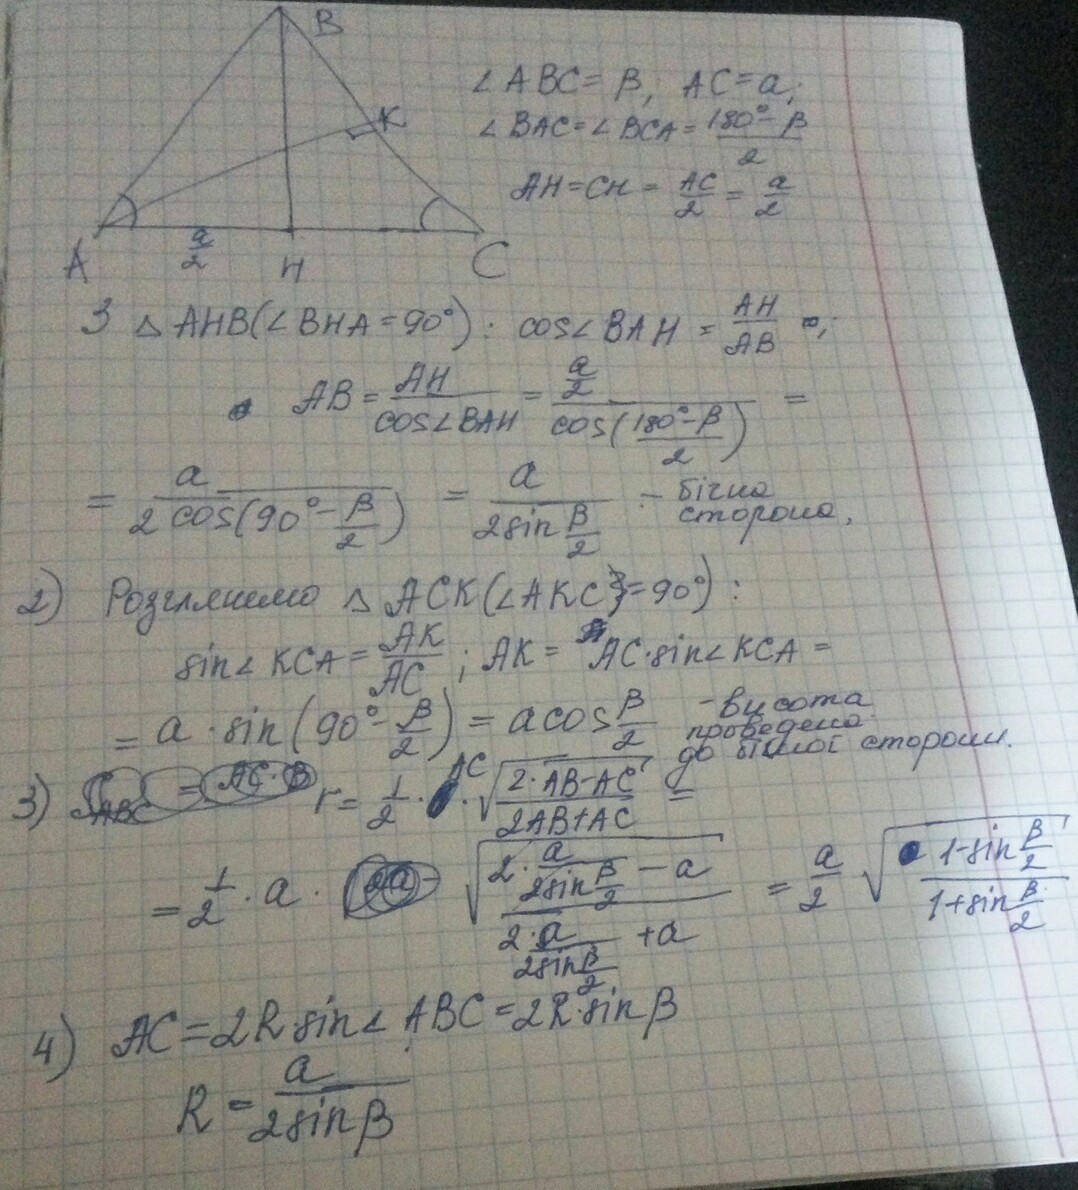 B
K
A
a/2
H
C
∠ABC = β; AC = a;
∠BAC = ∠BCA = (180° - β)/2
AH = CH = AC/2 = a/2
З △AHB (∠BHA = 90°): cos∠BAH = AH/AB ;
AB = AH/cos∠BAH = (a/2)/cos((180° - β)/2) =
= a/(2cos(90° - β/2)) = a/(2sin β/2) - бічна
сторона,
2) Розглянемо △ACK (∠AKC = 90°):
sin∠KCA = AK/AC ; AK = AC·sin∠KCA =
= a·sin(90° - β/2) = a cos β/2 - висота
проведена
до бічної сторони.
3) r = 1/2 · AC · √((2·AB - AC)/(2AB + AC)) =
= 1/2 · a · √((2·a/(2sin β/2) - a)/(2·a/(2sin β/2) + a)) = a/2 √((1 - sin β/2)/(1 + sin β/2))
4) AC = 2R·sin∠ABC = 2R·sinβ
R = a/(2sinβ)